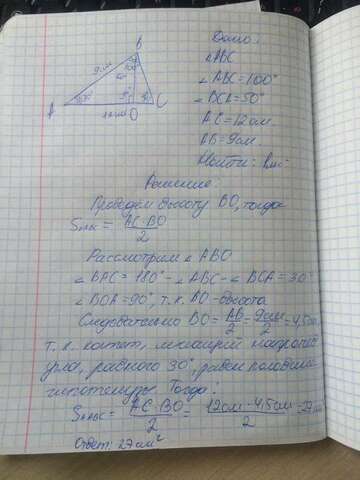 Дано:
△ABC
∠ABC=100°
∠BCA=50°
AC=12см
AB=9см
Найти:
B
9см
A
O
C
12см
Решение:
Проведём высоту BO, тогда
S△ABC = AC·BO / 2
Рассмотрим △ABO
∠BAC = 180° - ∠ABC - ∠BCA = 30°
∠BOA = 90°, т.к. BO-высота
Следовательно BO = AB/2 = 9см/2 = 4,5см
т.к. катет, лежащий напротив
угла, равного 30°, равен половине
гипотенузы. Тогда:
S△ABC = AC·BO / 2 = 12см·4,5см / 2 = 27
Ответ: 27см²